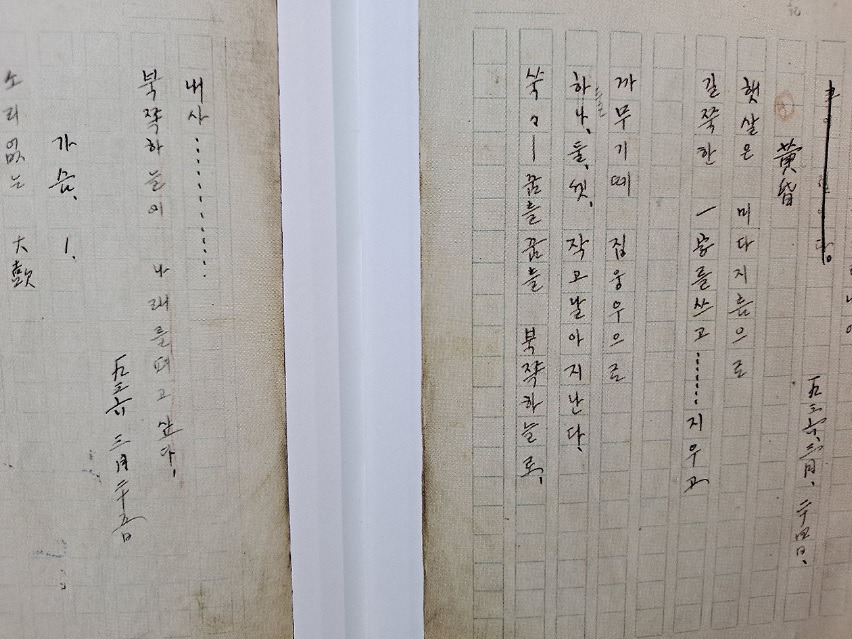 一九三六、三月、二十四日、
黃昏
햇살은 미다지틈으로
길쭉한 一字를쓰고………지우고
까무기떼 집웅우으로
하나、둘、셋、작고날아지난다、
쑥々—꿈틀꿈틀 북쪽하늘로、
내사…………
북쪽하늘에 나래를펴고싶다、
一九三六、三月二十五日
가슴、1.
소리없는 大鼓